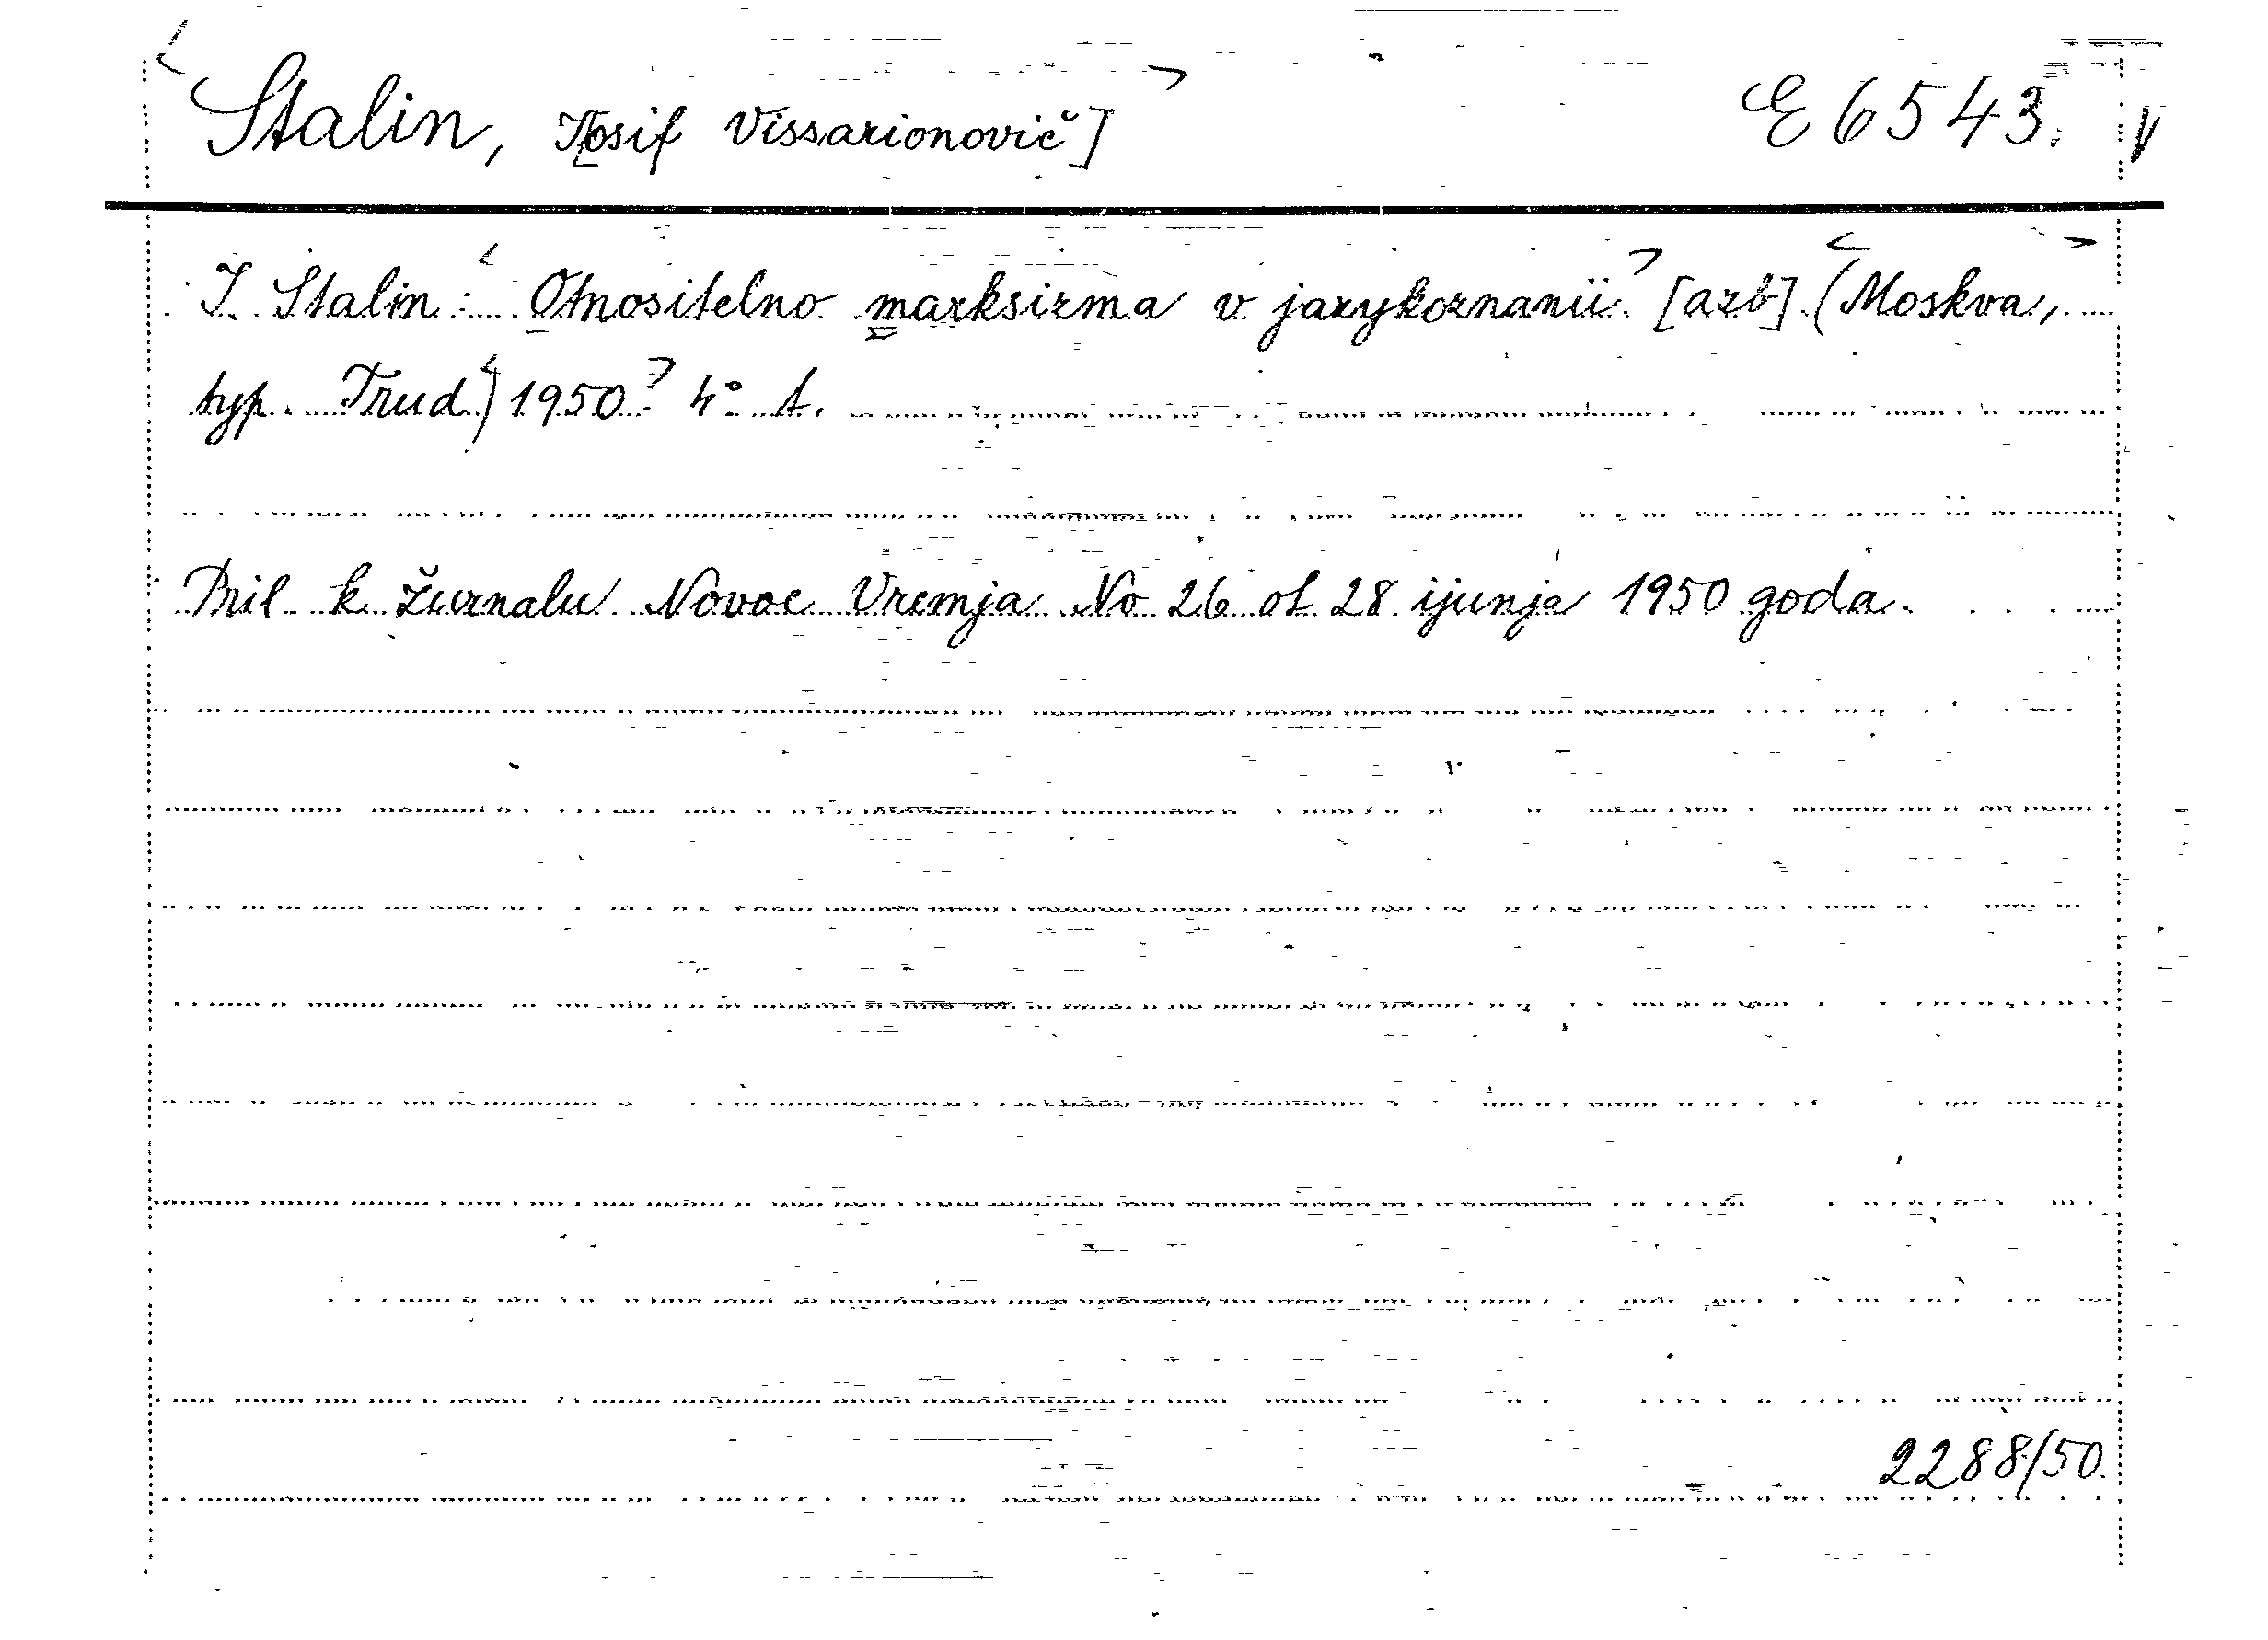 Stalin, I[osif Vissarionovič] E 6543. V
I. Stalin: Otnositelno marksizma v jazykoznanii. [azb] (Moskva,
typ. Trud) 1950. 4° t.
Pril k žurnalu Novoe Vremja No 26 ot 28 ijunja 1950 goda.
2288/50.